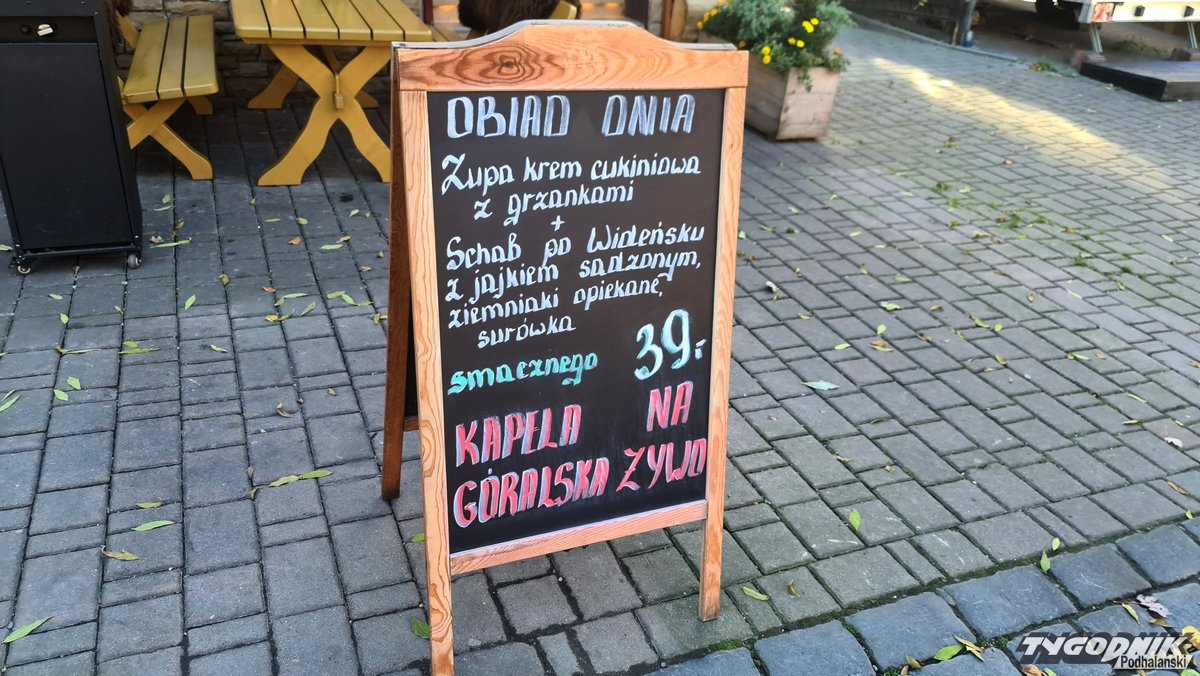 OBIAD DNIA
Zupa krem cukiniowa
z grzankami
+
Schab po Wideńsku
z jajkiem sadzonym,
ziemniaki opiekane,
surówka
smacznego 39.-
KAPELA NA
GÓRALSKA ŻYWO
TYGODNIK
Podhalański